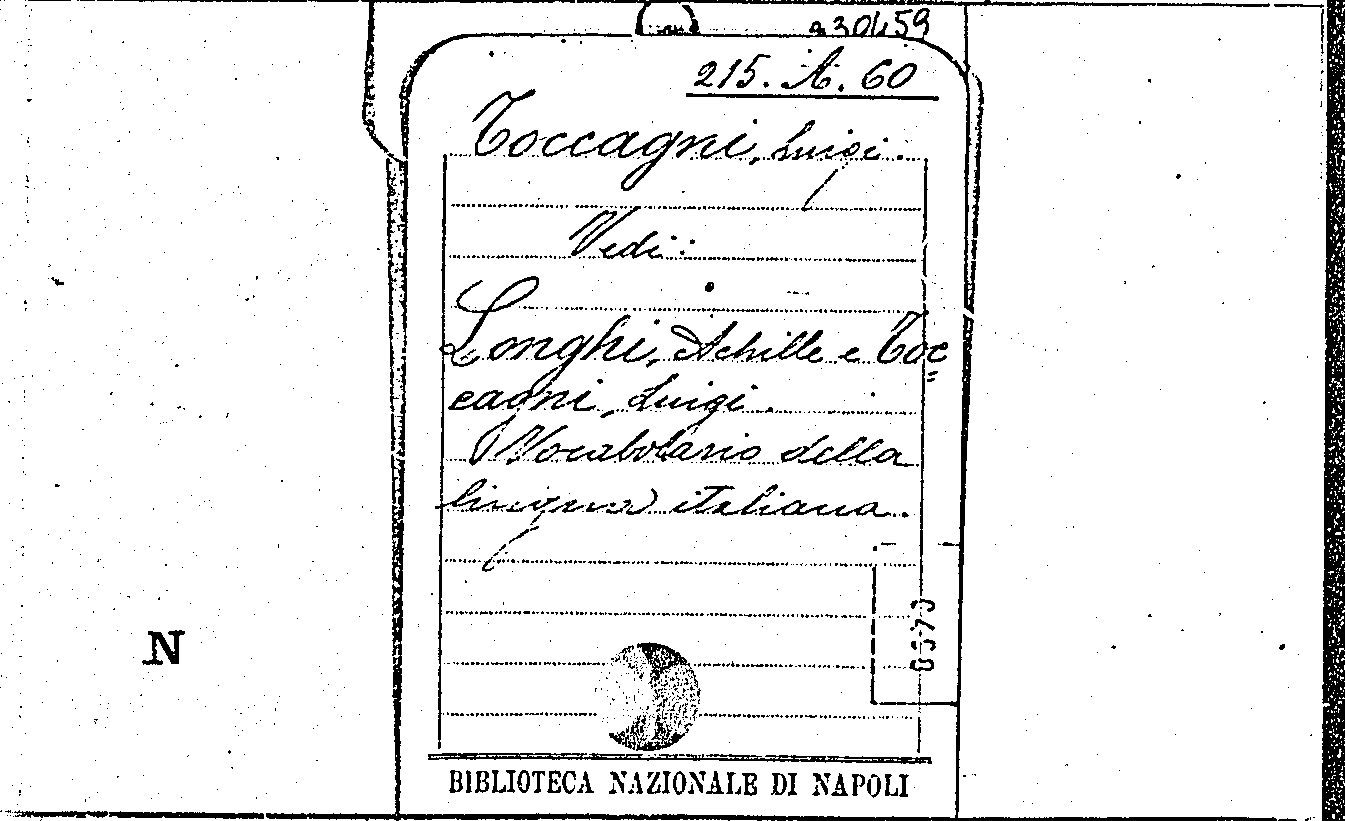 a30459
215. A. 60
Toccagni, Luigi.
Vedi:
Longhi, Achille e Toc=
cagni, Luigi.
Vocabolario della
lingua italiana.
N
BIBLIOTECA NAZIONALE DI NAPOLI